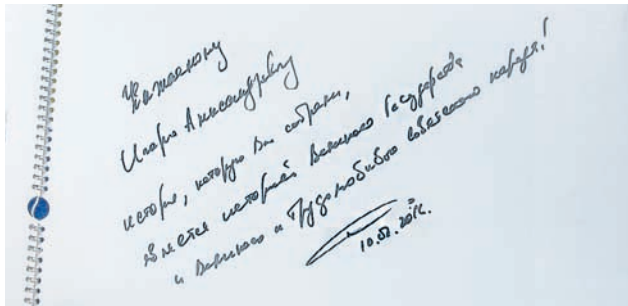 Уважаемому
Игорю Александровичу
история, которую Вы собрали,
является историей Великого Государства
и Великого и Трудолюбивого советского народа!
10.02.2016.